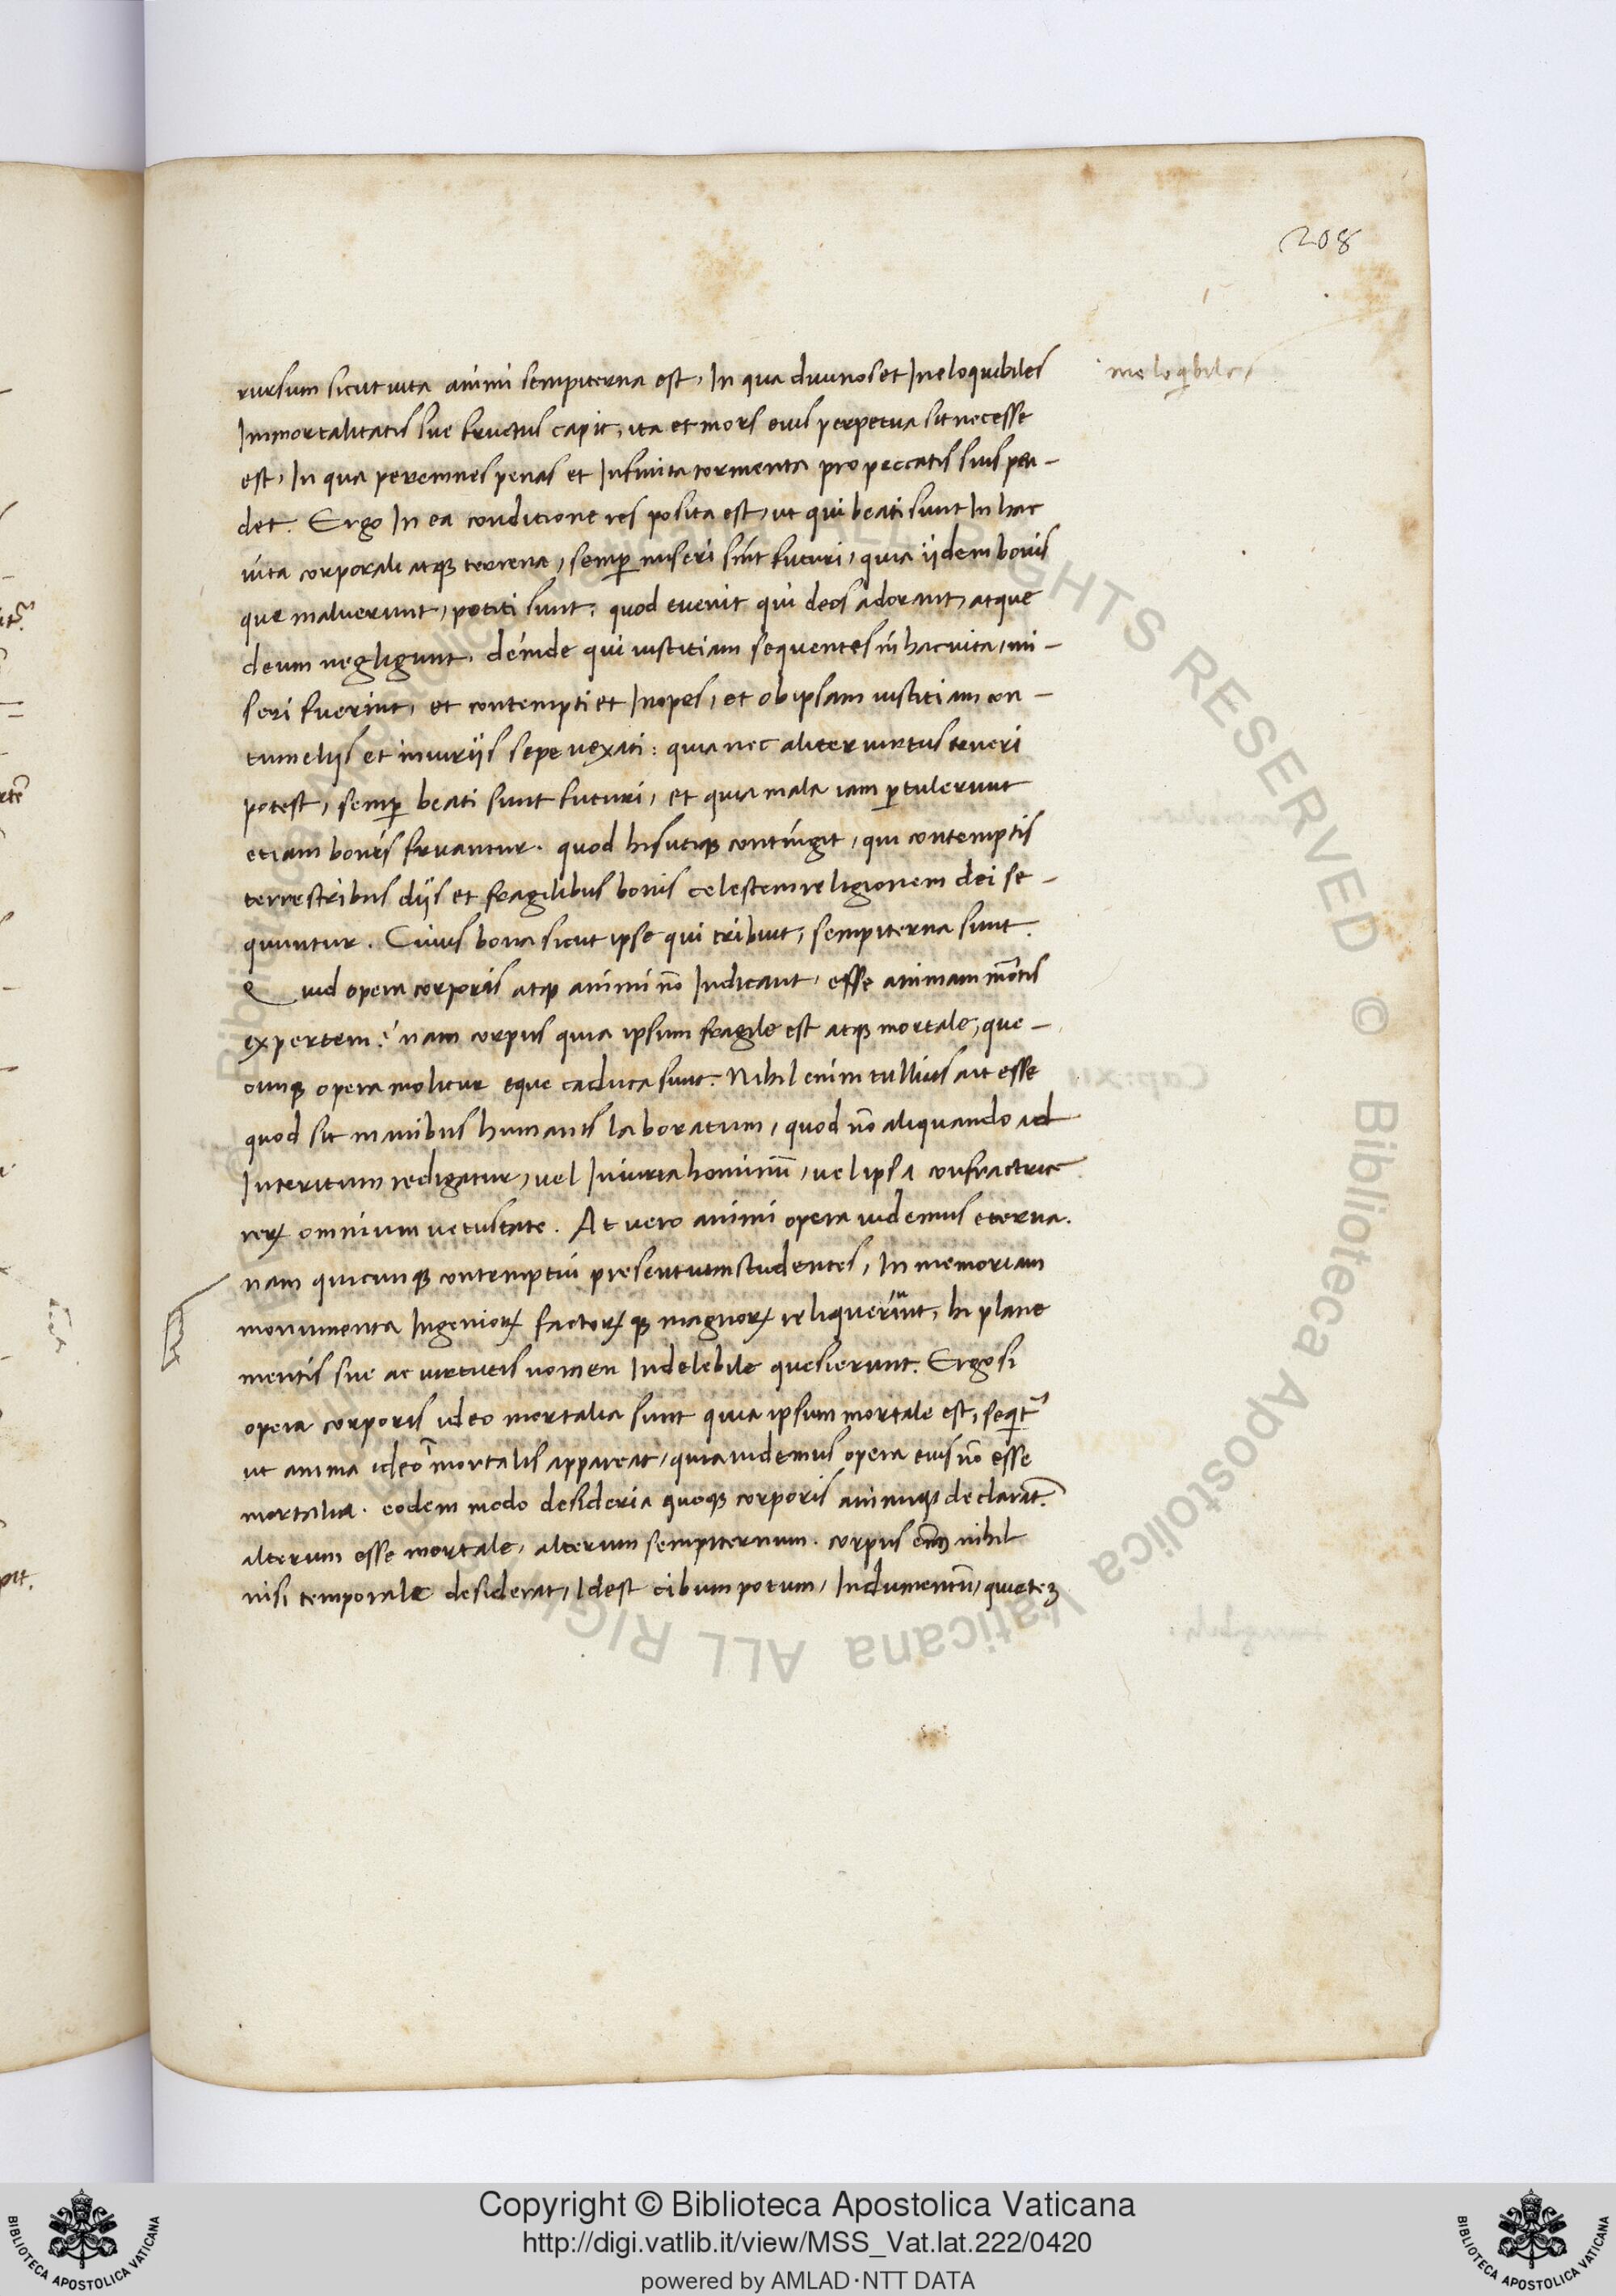 208
rursum sicut uita animi sempiterna est, In qua diuinos et Ineloquibiles
ineloqibiles
Immortalitatis sue fructus capit, ita et mors eius perpetua sit necesse
est, In qua perennes penas et Infinita tormenta pro peccatis suis pen-
det. Ergo In ea conditione res posita est, ut qui beati sunt In hac
uita corporali atq terrena, semp miseri sint futuri, quia iidem bonis
que maluerunt, potiti sunt: quod euenit qui deos adorant, atque
deum negligunt. deinde qui iustitiam sequentes in hac uita, mi-
seri fuerint, et contempti et Inopes, et ob ipsam iustitiam con-
tumeliis et iniuriis sepe uexati: quia nec aliter uirtus teneri
potest, semp beati sunt futuri, et quia mala iam ptulerunt
etiam bonis fruantur. quod his utiq contingit, qui contemptis
terrestribus diis et fragilibus bonis celestem religionem dei se-
quuntur. Cuius bona sicut ipse qui tribuit, sempiterna sunt.
Quid opera corporis atq animi nō Indicant, esse animam mōtis
expertem? nam corpus quia ipsum fragile est atq mortale, que-
cunq opera molitur eque caduca sunt. Nihil enim tullius ait esse
quod sit manibus humanis laboratum, quod nō aliquando ad
Interitum redigatur, uel Iniuria hominū, uel ipsa confractrice
reꝝ omnium uetustate. At uero animi opera uidemus eterna.
nam quicunq contemptui presentium studentes, In memoriam
monumenta Ingenioꝝ factoꝝ q magnoꝝ reliquerunt, hi plane
mentis sue ac uirtutis nomen Indelebile quesierunt. Ergo si
opera corporis ideo mortalia sunt quia ipsum mortale est, seqit
ut anima ideo īmortalis appareat, quia uidemus opera eius nō esse
mortalia. eodem modo desideria quoq corporis animiq declarāt
alterum esse mortale, alterum sempiternum. corpus enī nihil
nisi temporale desiderat, Idest cibum potum, Indumentū, quietez
Copyright © Biblioteca Apostolica Vaticana
http://digi.vatlib.it/view/MSS_Vat.lat.222/0420
powered by AMLAD·NTT DATA
BIBLIOTECA APOSTOLICA VATICANA
BIBLIOTECA APOSTOLICA VATICANA